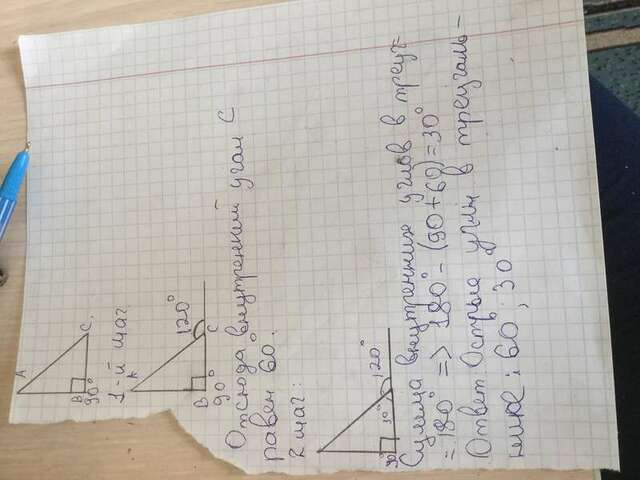 A
B
C.
90°
1-й шаг
A
120°
B
C
90°
Отсюда внутренний угол C
равен 60°.
2 шаг:
90°
30°
120°
Сумма внутренних углов в треуг-
= 180° => 180° - (90+60) = 30°
Ответ Острые углы в треугаль-
нике: 60°; 30°